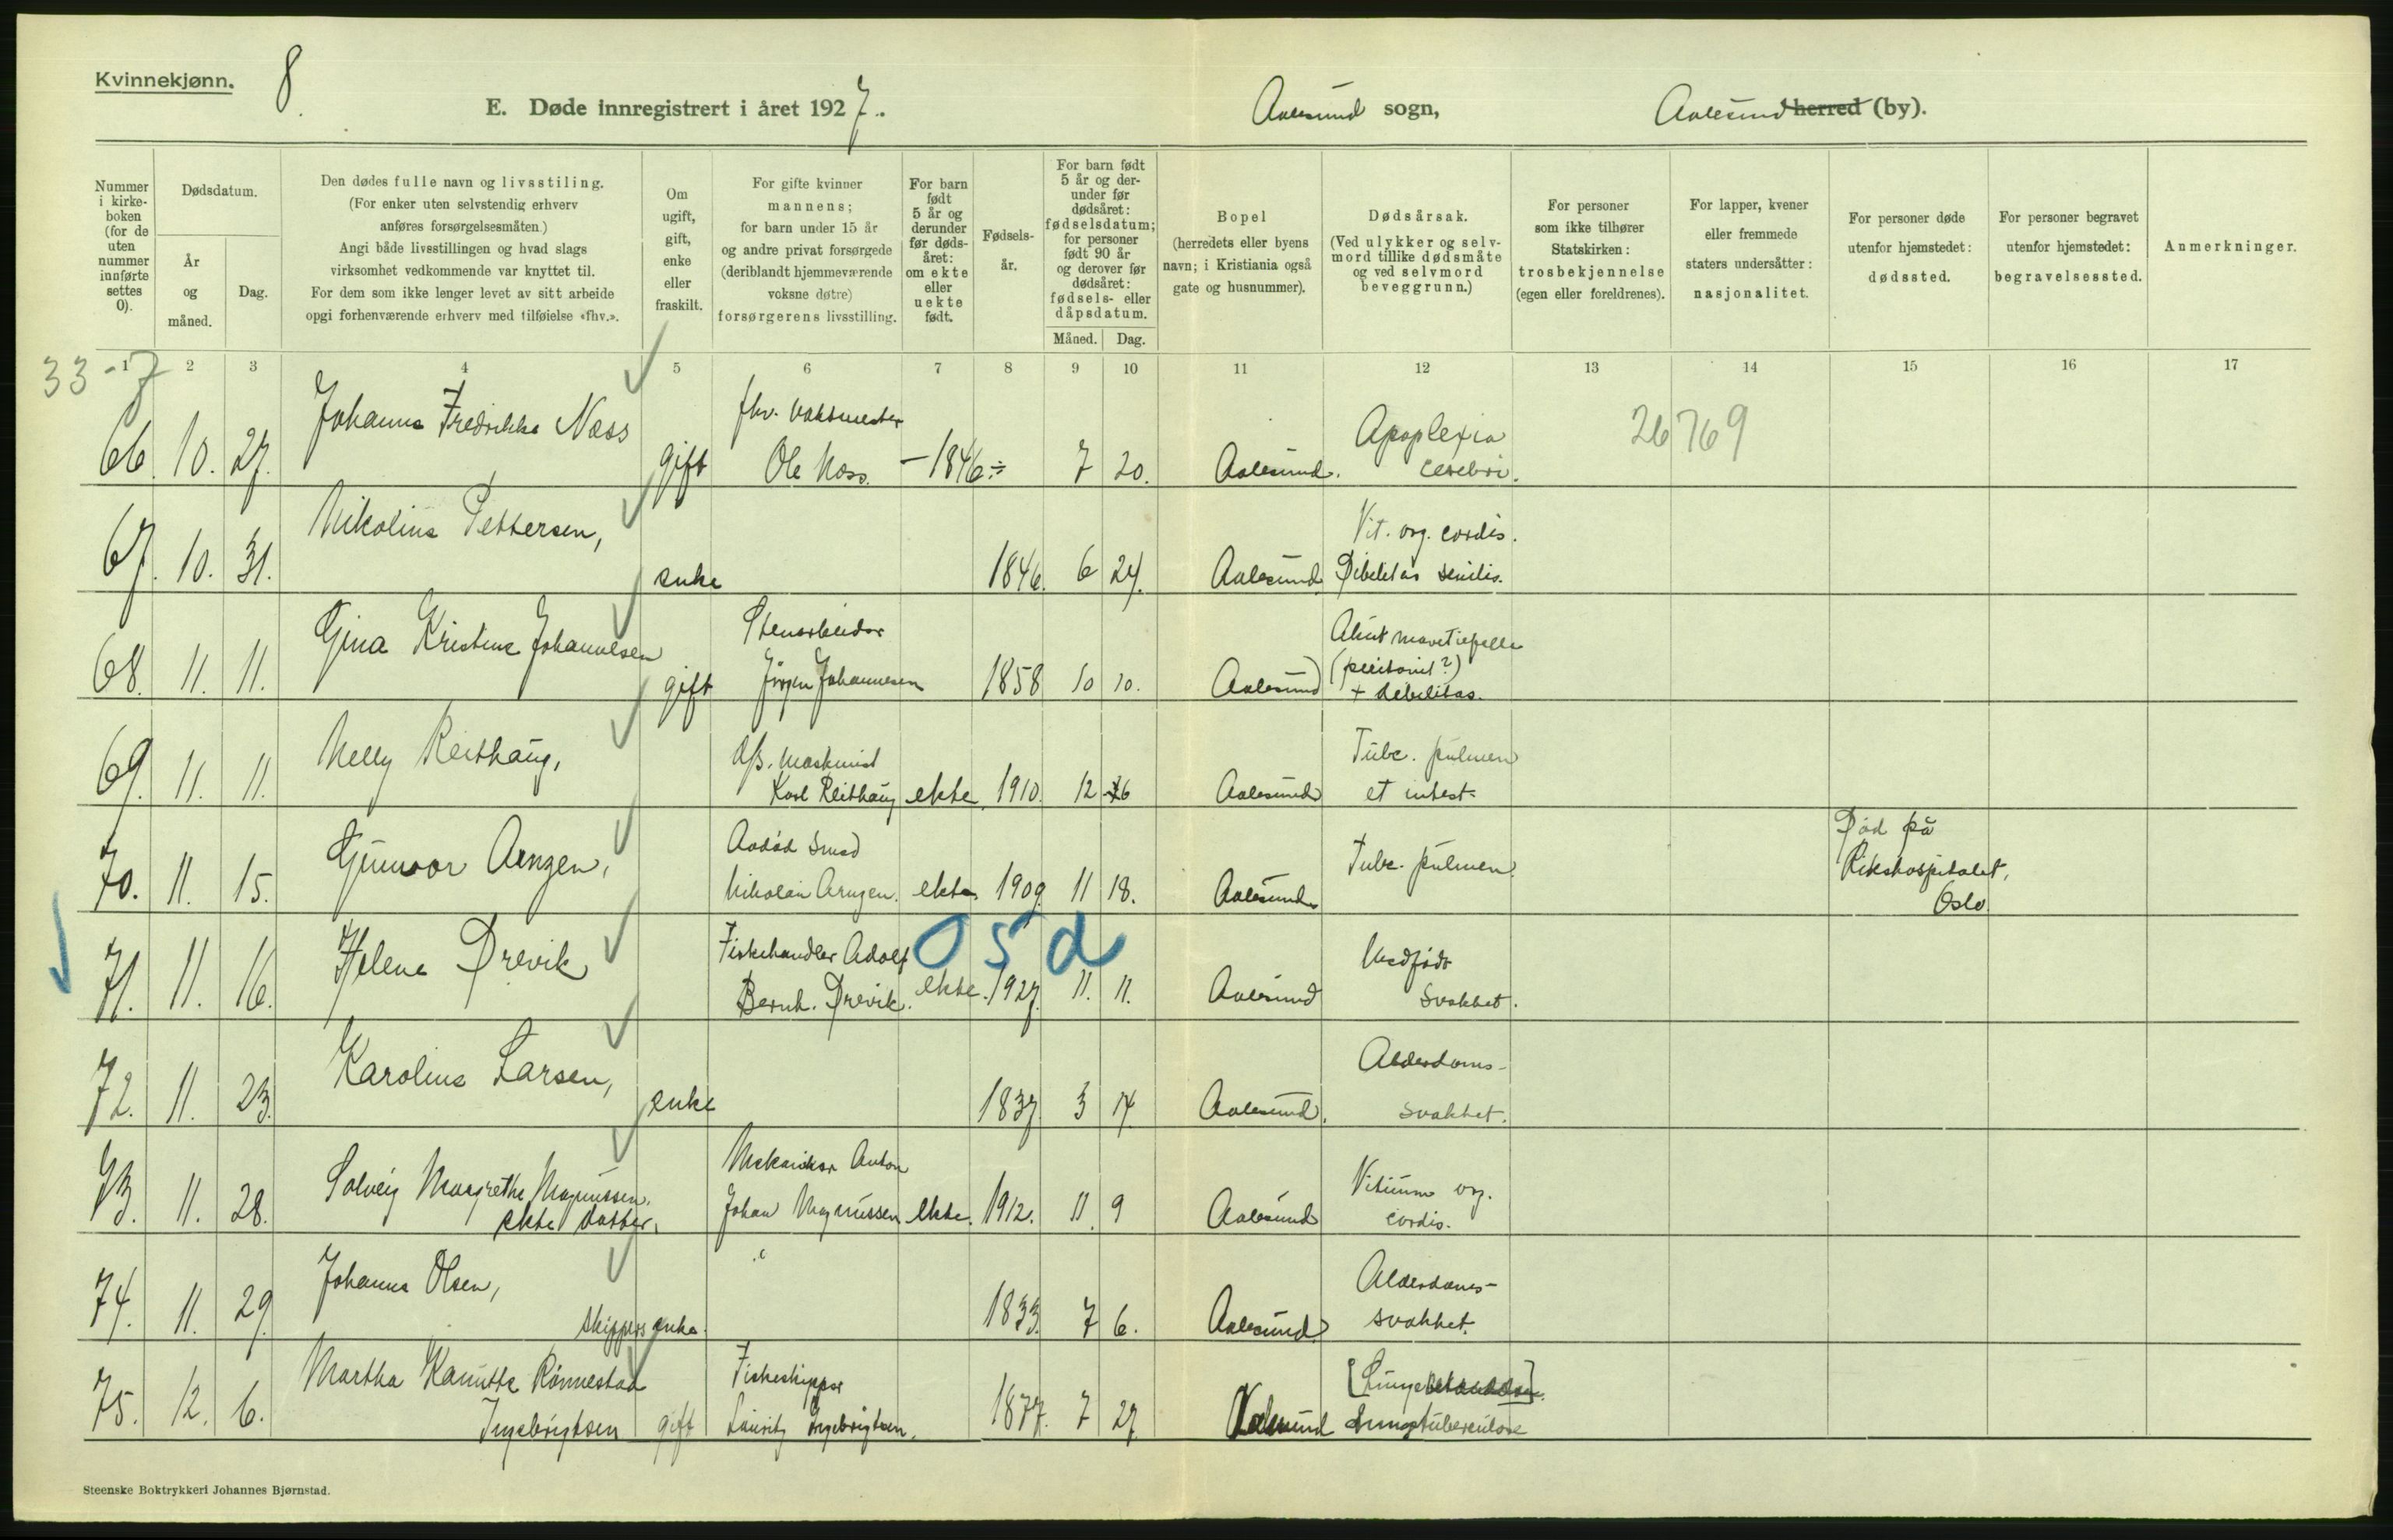 Kvinnekjønn.
8.
E. Døde innregistrert i året 1927.
Aalesund sogn,
Aalesund herred (by).
Nummer i kirkeboken (for de uten nummer innførte settes 0).
Dødsdatum.
År og måned.
Dag.
Den dødes fulle navn og livsstiling.
(For enker uten selvstendig erhverv
anføres forsørgelsesmåten.)
Angi både livsstillingen og hvad slags
virksomhet vedkommende var knyttet til.
For dem som ikke lenger levet av sitt arbeide
opgi forhenværende erhverv med tilføielse «fhv.».
Om ugift, gift, enke eller fraskilt.
For gifte kvinner
mannens;
for barn under 15 år
og andre privat forsørgede
(deriblandt hjemmeværende
voksne døtre)
forsørgerens livsstilling.
For barn født 5 år og derunder før dødsåret: om ekte eller uekte født.
Fødselsår.
For barn født 5 år og derunder før dødsåret: fødselsdatum; for personer født 90 år og derover før dødsåret: fødsels- eller dåpsdatum.
Måned.
Dag.
Bopel
(herredets eller byens
navn; i Kristiania også
gate og husnummer).
Dødsårsak.
(Ved ulykker og selvmord tillike dødsmåte
og ved selvmord
beveggrunn.)
For personer
som ikke tilhører
Statskirken:
trosbekjennelse
(egen eller foreldrenes).
For lapper, kvener
eller fremmede
staters undersåtter:
nasjonalitet.
For personer døde
utenfor hjemstedet:
dødssted.
For personer begravet
utenfor hjemstedet:
begravelsessted.
Anmerkninger.
1 2 3 4 5 6 7 8 9 10 11 12 13 14 15 16 17
33-7
66. 10. 27. Johanna Fredrikke Næss gift fhv. vaktmester
Ole Næss. – 1846 ÷ 7 20. Aalesund. Apoplexia
cerebri. 26769
67. 10. 31. Nikoline Pettersen, enke 1846. 6 24. Aalesund Vit. org. cordis.
Debilitas senilis.
68. 11. 11. Gina Kristine Johannesen gift Stenarbeider
Jörgen Johannesen 1858 10 10. Aalesund Akut mavetilfelle
(peritonit?)
+ debilitas.
69. 11. 11. Nelly Reithaug, maskinist
Karl Reithaug ekte. 1910. 12 26 Aalesund Tubc. pulmon
et intest.
70. 11. 15. Gunvor Arnzen, Avdød smed
Nikolai Arnzen. ekte. 1909. 11 18. Aalesund Tubc. pulmon.
Död på
Rikshospitalet,
Oslo.
71. 11. 16. Helene Drevik Fiskehandler Adolf
Bernh. Drevik. ekte. 1927. 11. 11. Aalesund Medfödt
svakhet.
72. 11. 23. Karoline Larsen, enke 1837. 3 14. Aalesund. Alderdoms-
svakhet.
73. 11. 28. Solveig Margrethe Magnussen.
ekte datter. Mekaniker Anton
Johan Magnussen ekte. 1912. 11. 9 Aalesund Vitium org.
cordis.
74. 11. 29. Johanna Olsen,
skippers enke. 1833. 7 6. Aalesund. Alderdoms-
svakhet.
75. 12. 6. Martha Kanutte Rönnestad
Ingebrigtsen gift Fiskeskipper
Lauritz Ingebrigtsen. 1877. 7 27. Aalesund
Lungetuberculose
Steenske Boktrykkeri Johannes Bjørnstad.